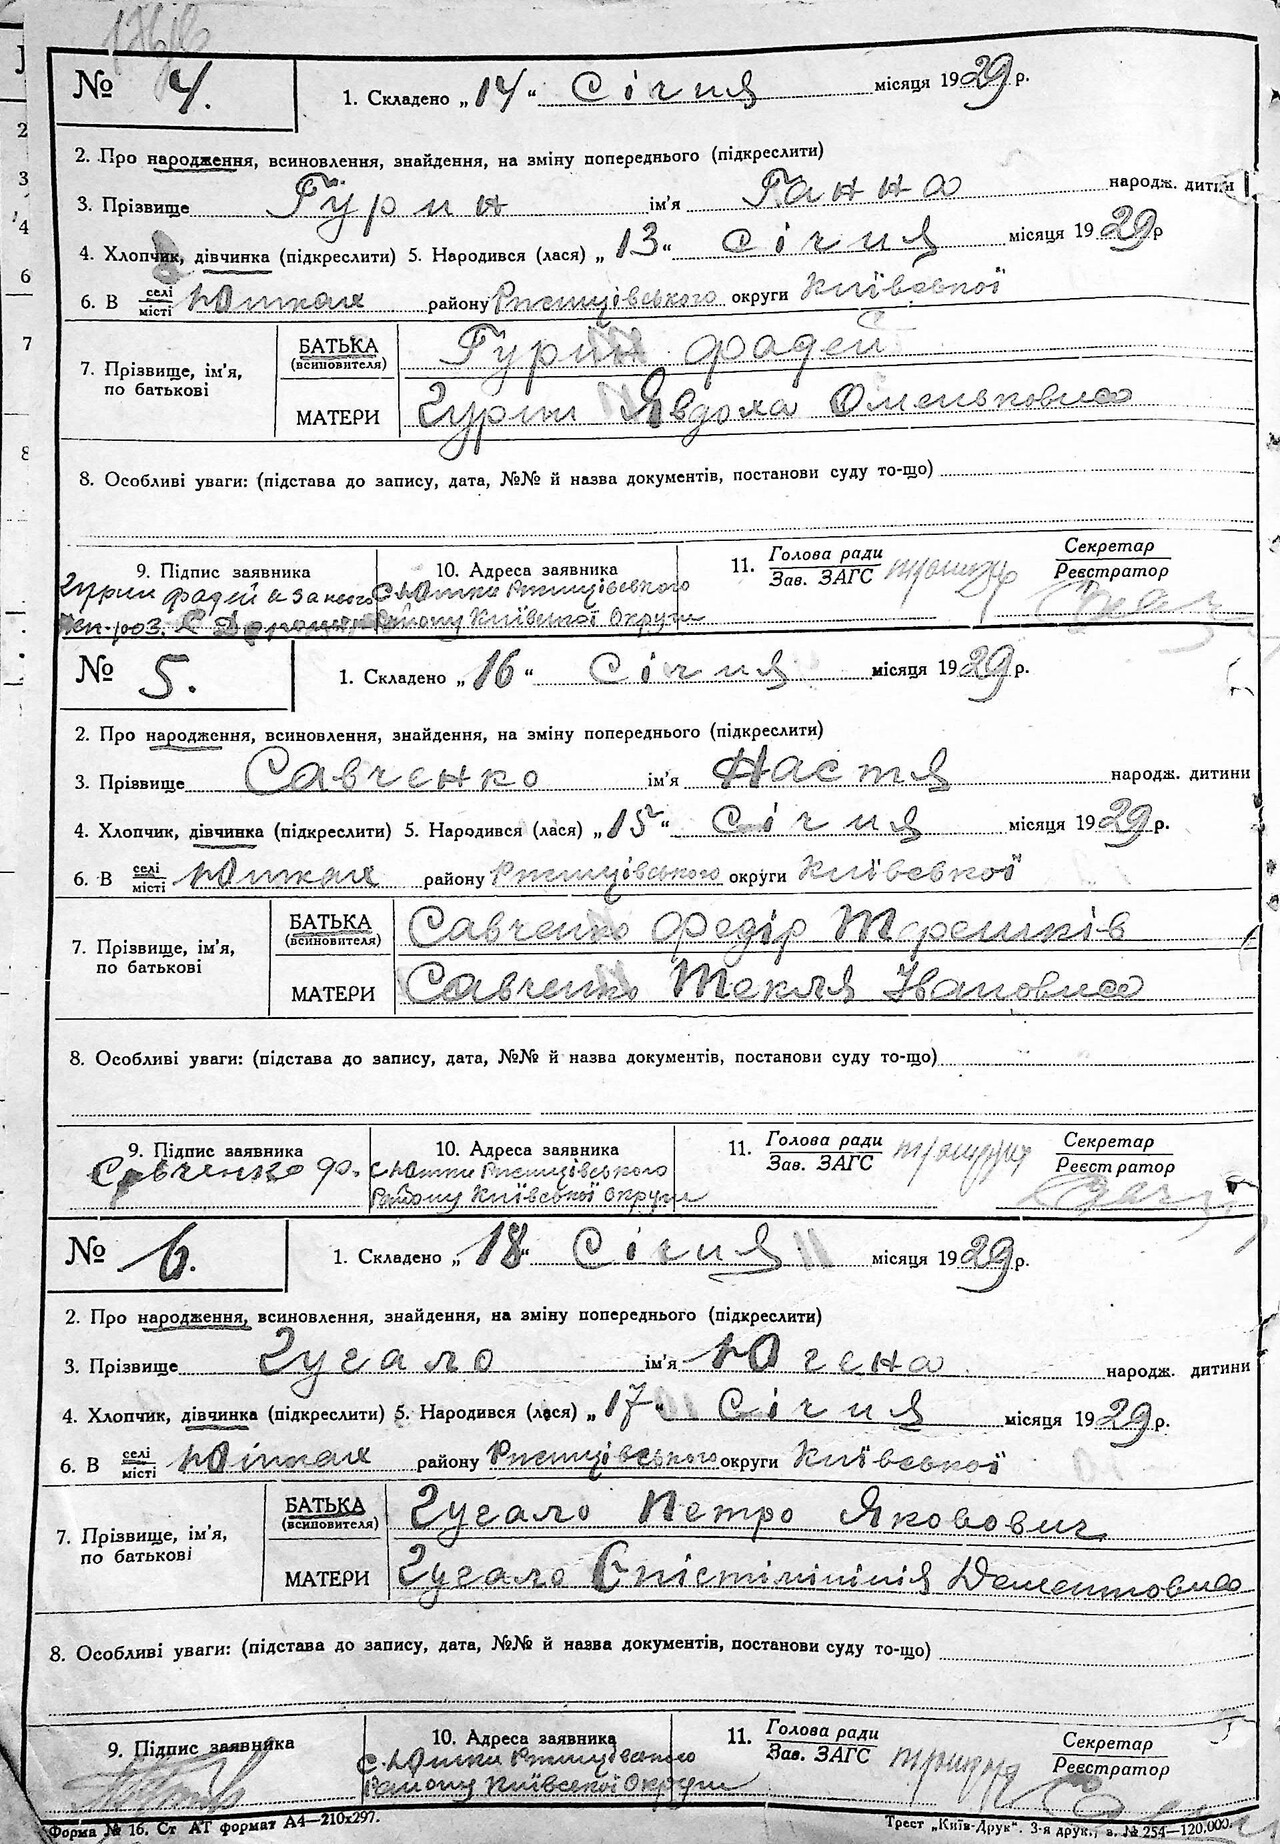 № 4.
1. Складено „14“ Січня місяця 1929 р.
2. Про народження, всиновлення, знайдення, на зміну попереднього (підкреслити)
3. Прізвище Гурин ім’я Ганна народж. дитини
4. Хлопчик, дівчинка (підкреслити) 5. Народився (лася) „13“ січня місяця 1929 р
6. В селі Юшках району Ржищівського округи Київської
місті
7. Прізвище, ім’я, по батькові
БАТЬКА (всиновителя) Гурин Фадей
МАТЕРИ Гурин Явдоха Омельковна
8. Особливі уваги: (підстава до запису, дата, №№ й назва документів, постанови суду то-що)
9. Підпис заявника
Гурин Фадей а за него
10. Адреса заявника
с Юшки Ржищівського
Району Київської Округи
11. Голова ради
Зав. ЗАГС
Секретар
Реєстратор
№ 5.
1. Складено „16“ Січня місяця 1929 р.
2. Про народження, всиновлення, знайдення, на зміну попереднього (підкреслити)
3. Прізвище Савченко ім’я Настя народж. дитини
4. Хлопчик, дівчинка (підкреслити) 5. Народився (лася) „15“ Січня місяця 1929 р.
6. В селі Юшках району Ржищівського округи Київської
місті
7. Прізвище, ім’я, по батькові
БАТЬКА (всиновителя) Савченко Федір Терешків
МАТЕРИ Савченко Текля Івановна
8. Особливі уваги: (підстава до запису, дата, №№ й назва документів, постанови суду то-що)
9. Підпис заявника
Савченко Ф.
10. Адреса заявника
с Юшки Ржищівського
Району Київської Округи
11. Голова ради
Зав. ЗАГС
Секретар
Реєстратор
№ 6.
1. Складено „18“ Січня місяця 1929 р.
2. Про народження, всиновлення, знайдення, на зміну попереднього (підкреслити)
3. Прізвище Чугало ім’я Югена народж. дитини
4. Хлопчик, дівчинка (підкреслити) 5. Народився (лася) „17“ Січня місяця 1929 р.
6. В селі Юшках району Ржищівського округи Київської
місті
7. Прізвище, ім’я, по батькові
БАТЬКА (всиновителя) Петро Якович
МАТЕРИ
8. Особливі уваги: (підстава до запису, дата, №№ й назва документів, постанови суду то-що)
9. Підпис заявника
10. Адреса заявника
с. Юшки Ржищівського
Району Київської Округи
11. Голова ради
Зав. ЗАГС
Секретар
Реєстратор
Форма № 16. Ст АТ формат А4—210x297.
Трест „Київ-Друк“. 3-я друк., з. № 254—120.000.